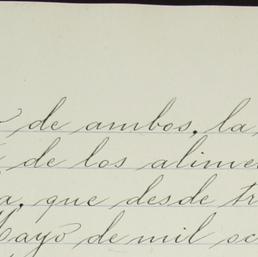 de ambos, la
de los alime
a, que desde tr
Mayo de mil oc